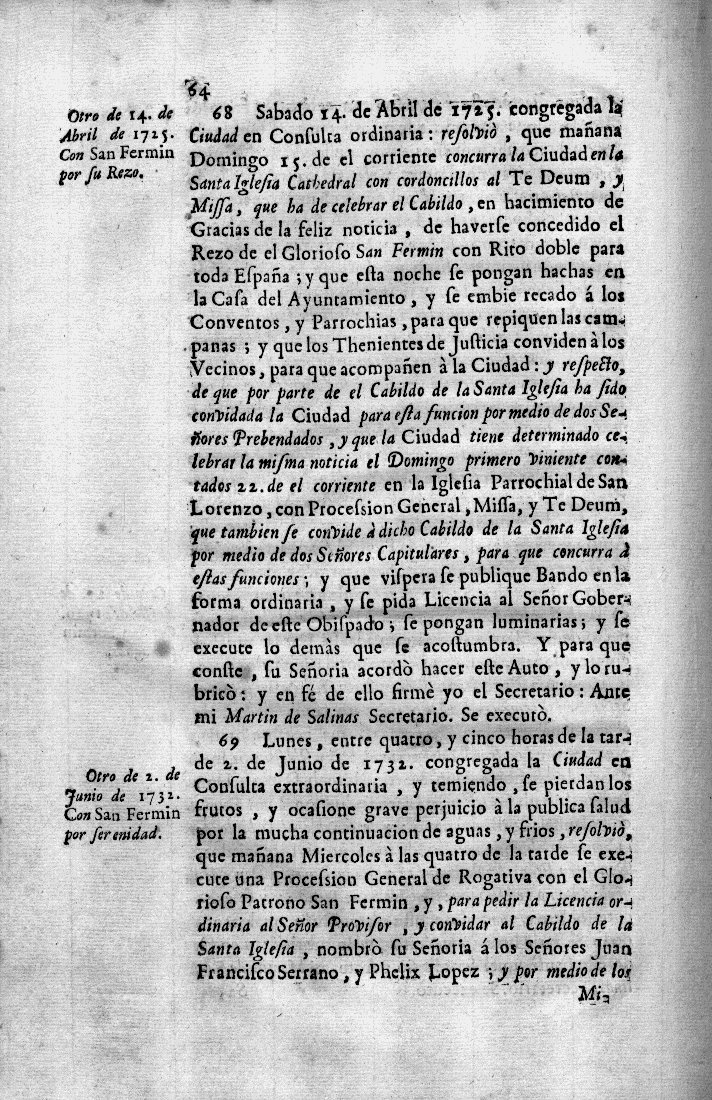 64
Otro de 14. de
Abril de 1725.
Con San Fermin
por ſu Rezo.
68 Sabado 14. de Abril de 1725. congregada la
Ciudad en Conſulta ordinaria: reſolviò, que mañana
Domingo 15. de el corriente concurra la Ciudad en la
Santa Igleſia Cathedral con cordoncillos al Te Deum, y
Miſſa, que ha de celebrar el Cabildo, en hacimiento de
Gracias de la feliz noticia, de haverſe concedido el
Rezo de el Glorioſo San Fermin con Rito doble para
toda Eſpaña; y que eſta noche ſe pongan hachas en
la Caſa del Ayuntamiento, y ſe embie recado á los
Conventos, y Parrochias, para que repiquen las cam-
panas; y que los Thenientes de Juſticia conviden à los
Vecinos, para que acompañen à la Ciudad: y reſpecto,
de que por parte de el Cabildo de la Santa Igleſia ha ſido
convidada la Ciudad para eſta funcion por medio de dos Se-
ñores Prebendados, y que la Ciudad tiene determinado ce-
lebrar la miſma noticia el Domingo primero viniente con-
tados 22. de el corriente en la Igleſia Parrochial de San
Lorenzo, con Proceſsion General, Miſſa, y Te Deum,
que tambien ſe convide à dicho Cabildo de la Santa Igleſia
por medio de dos Señores Capitulares, para que concurra à
eſtas funciones; y que viſpera ſe publique Bando en la
forma ordinaria, y ſe pida Licencia al Señor Gober-
nador de eſte Obiſpado; ſe pongan luminarias; y ſe
execute lo demàs que ſe acoſtumbra. Y para que
conſte, ſu Señoria acordò hacer eſte Auto, y lo ru-
bricò: y en fé de ello firmè yo el Secretario: Ante
mi Martin de Salinas Secretario. Se executò.
Otro de 2. de
Junio de 1732.
Con San Fermin
por ſerenidad.
69 Lunes, entre quatro, y cinco horas de la tar-
de 2. de Junio de 1732. congregada la Ciudad en
Conſulta extraordinaria, y temiendo, ſe pierdan los
frutos, y ocaſione grave perjuicio à la publica ſalud
por la mucha continuacion de aguas, y frios, reſolviò,
que mañana Miercoles à las quatro de la tarde ſe exe-
cute una Proceſsion General de Rogativa con el Glo-
rioſo Patrono San Fermin, y, para pedir la Licencia or-
dinaria al Señor Proviſor, y convidar al Cabildo de la
Santa Igleſia, nombrò ſu Señoria á los Señores Juan
Franciſco Serrano, y Phelix Lopez; y por medio de los
Mi-